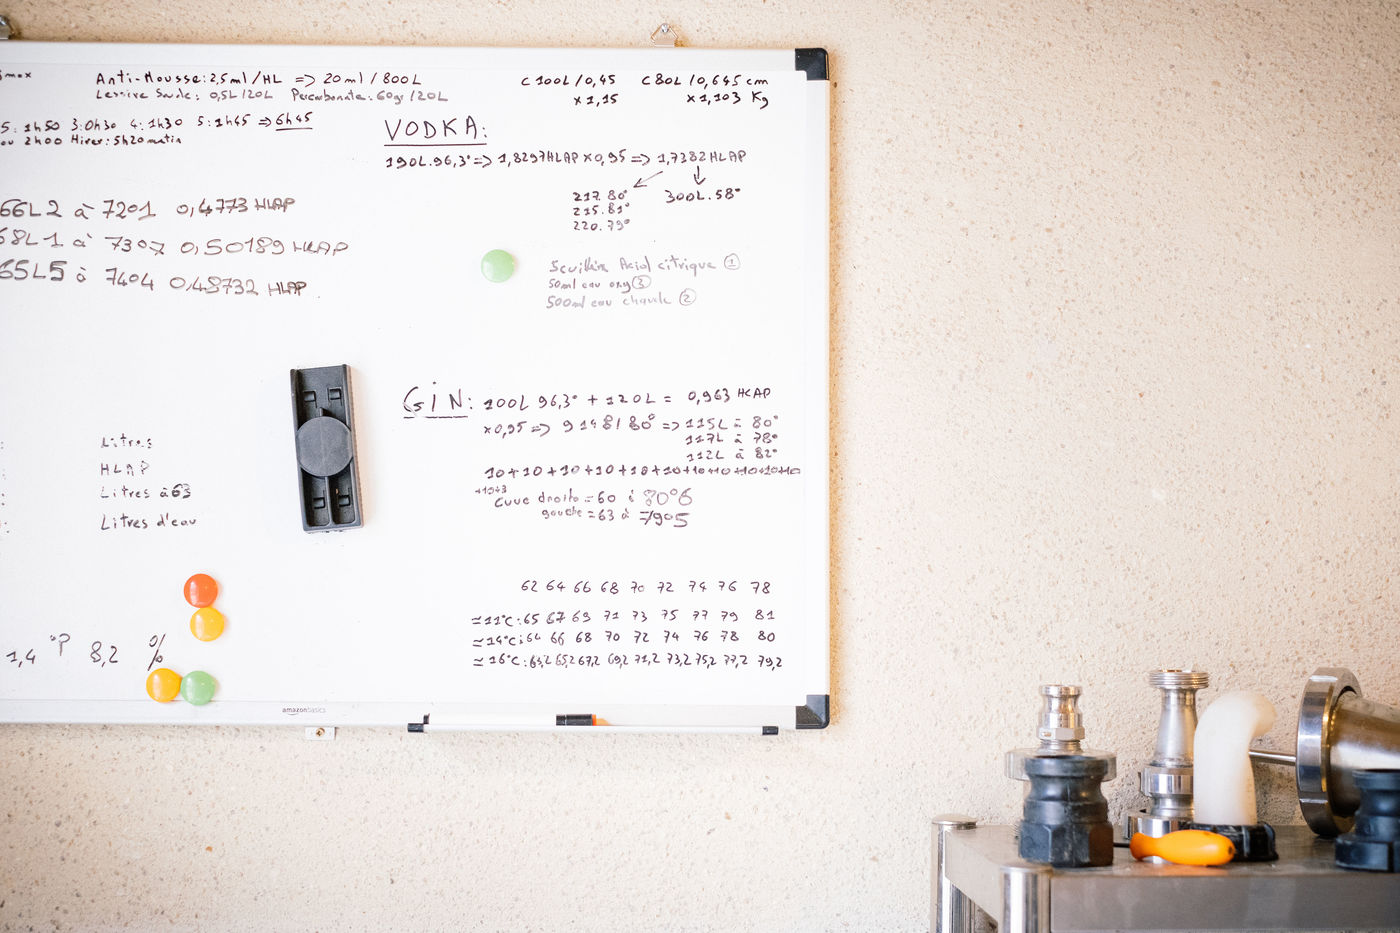 Anti-Mousse: 2,5ml/HL => 20ml/800L
Lessive Soude: 0,5L/20L Percarbonate: 60gr/20L
5: 1h50 3: 0h30 4: 1h30 5: 1h45 => 6h45
ou 2h00 Hiver: 5h20 matin
66L2 à 7201 0,4773 HLAP
68L1 à 7307 0,50189 HLAP
65L5 à 7404 0,48732 HLAP
Litres
HLAP
Litres à 63
Litres d'eau
1,4 °P 8,2 %
C100L/0,45 C80L/0,645 cm
x1,15 x1,103 Kg
VODKA:
190L.96,3° => 1,8297HLAP x0,95 => 1,7382HLAP
217.80° 300L.58°
215.81°
220.79°
Acid citrique ①
50ml eau oxy ③
500ml eau chaude ②
GIN: 100L 96,3° + 120L = 0,963 HLAP
x0,95 => 80° => 115L à 80°
117L à 78°
112L à 82°
10+10+10+10+10+10+10+10+10+10+10
+10+3
Cuve droite = 60 à 80°6
gauche = 63 à 79°5
62 64 66 68 70 72 74 76 78
≃11°C: 65 67 69 71 73 75 77 79 81
≃14°C: 64 66 68 70 72 74 76 78 80
≃16°C: 63,2 65,2 67,2 69,2 71,2 73,2 75,2 77,2 79,2
amazonbasics